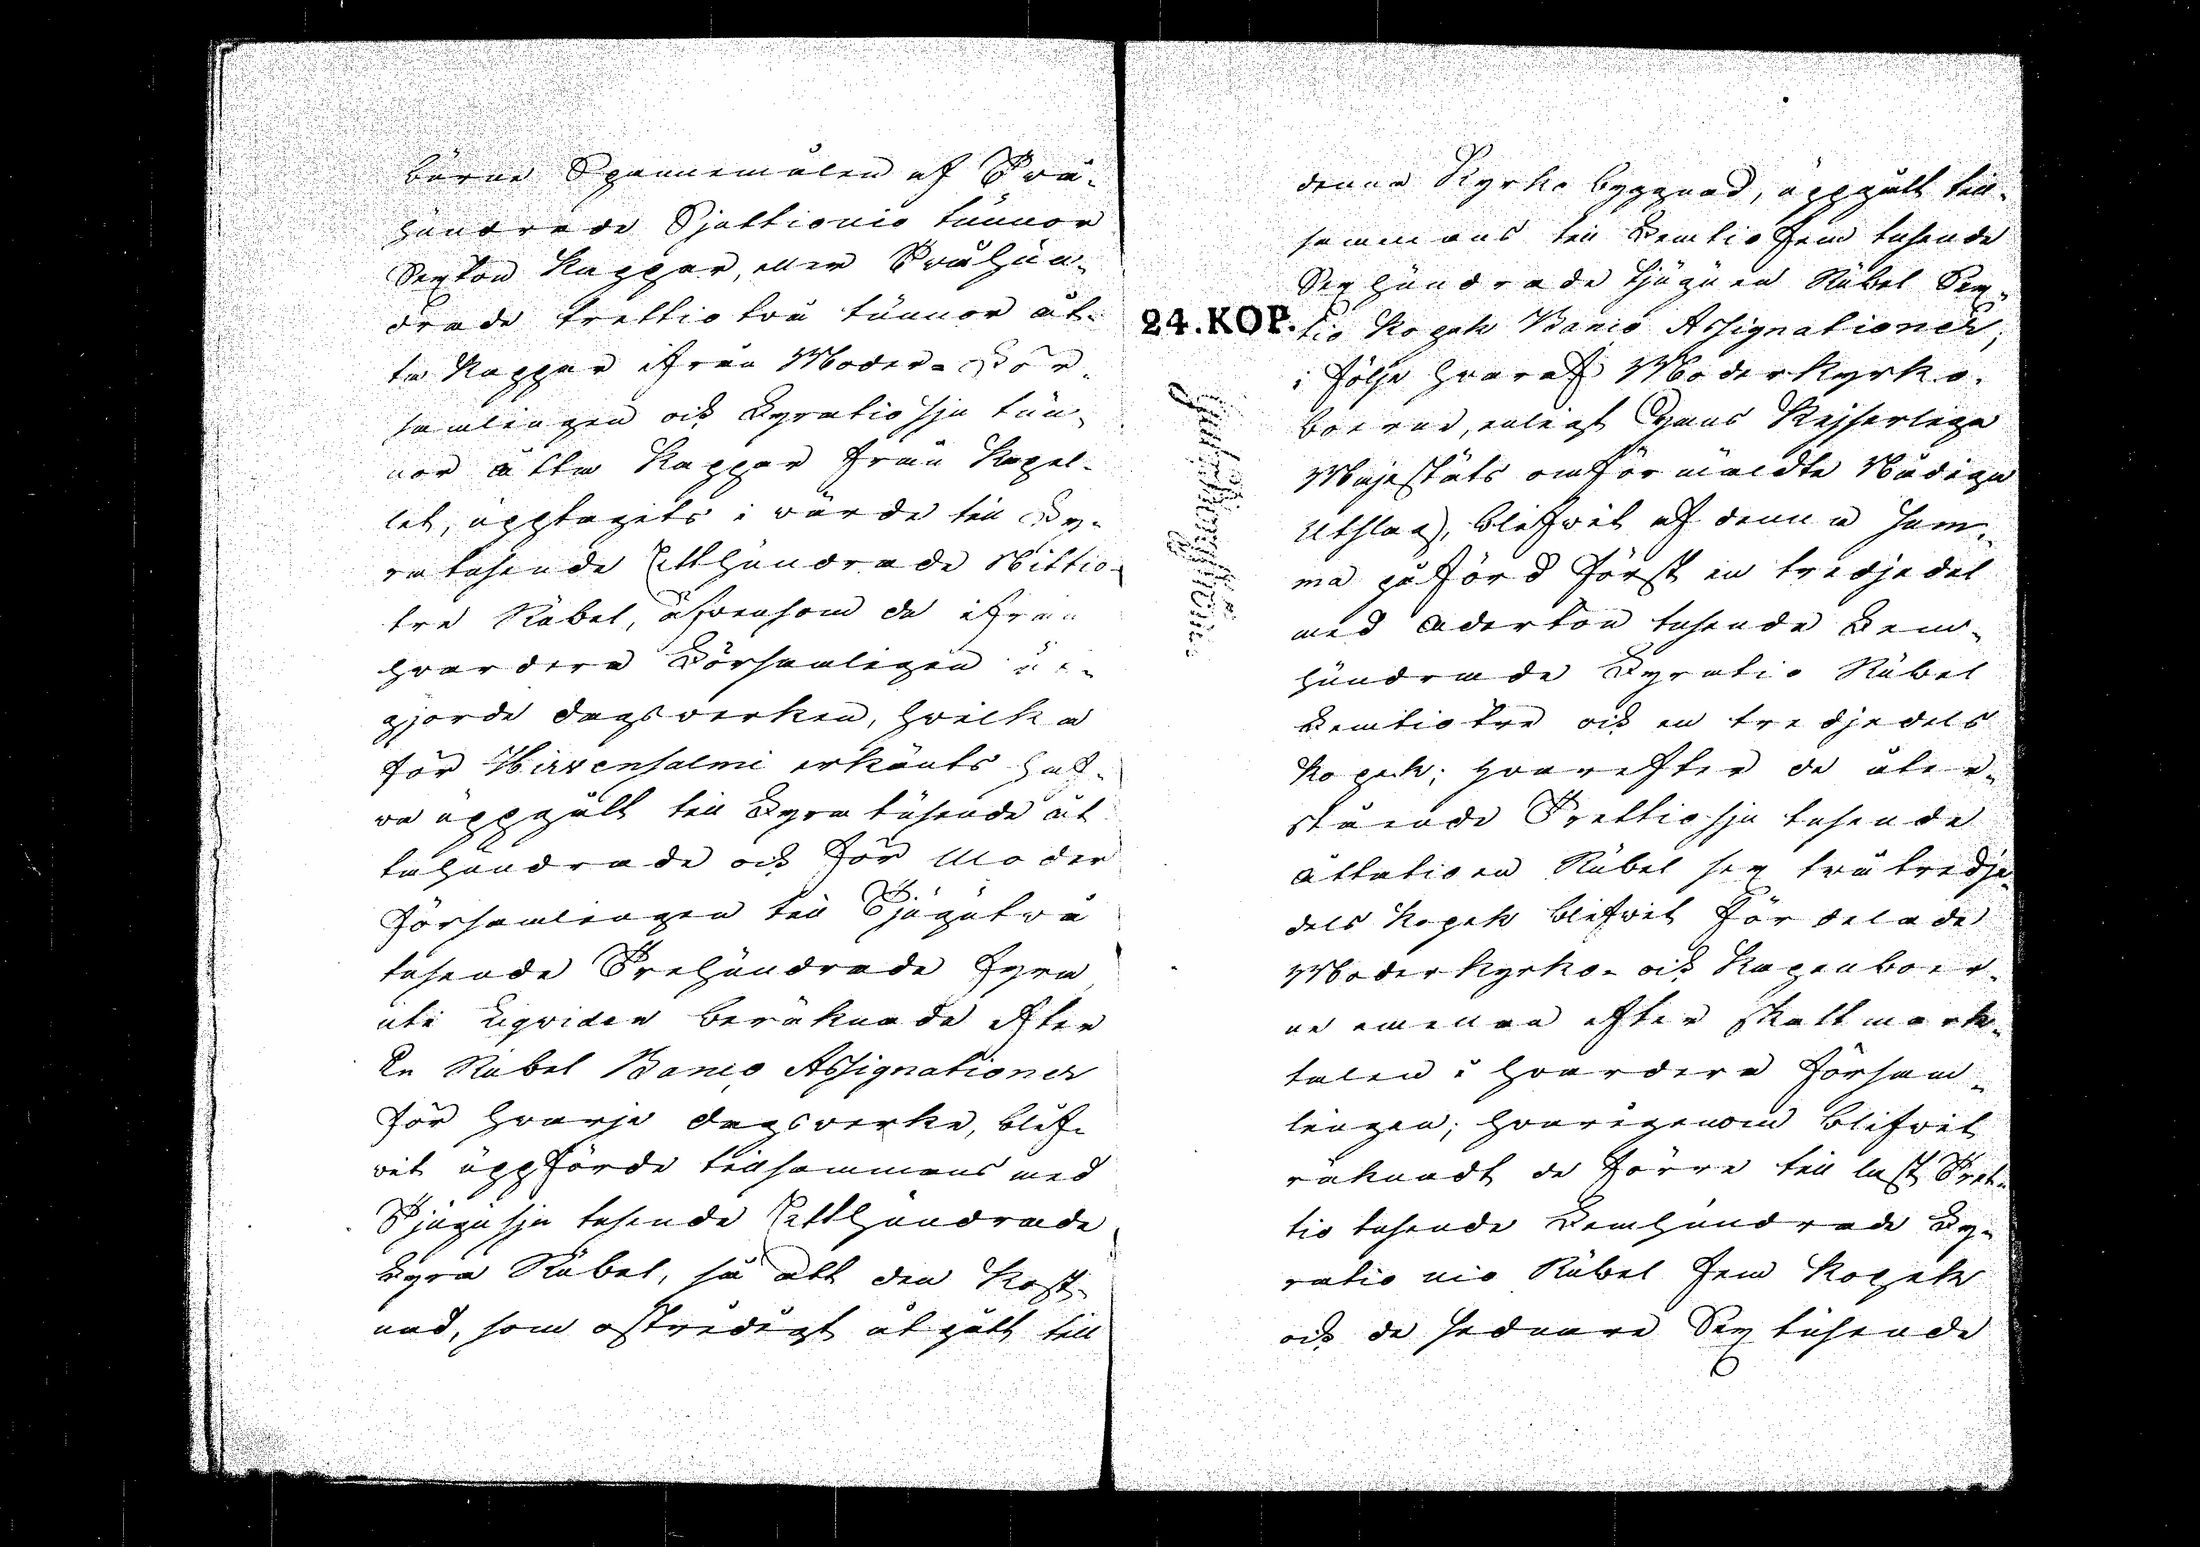 burne Spannemålen af Två-
hundrade Sjuttionio tunnor
Sexton Kappar, eller Tvåhun-
drade trettiotvå tunnor åt-
ta Kappar ifrån Moder-För-
samlingen och Fyratiosju tun-
nor åtta Kappar från Kapel-
let, upptagits i värde till Fy-
ratusende Etthundrade Nittio-
tre Rubel, äfvensom de ifrån
hvardera Församlingen ut-
gjorde dagsverken, hvilka
för Hirvensalmi erkänts haf-
va uppgått till Fyratusende åt-
tahundrade och för Moder
församlingen till Tjugutvå
tusende Trehundrade fyra,
uti Liqviden beräknade efter
En Rubel Banco Assignationer
för hvarje dagsverke, blif-
vit uppförde tillsammans med
Tjugusju tusende Etthundrade
Fyra Rubel, så att den Kost-
nad, som ostridigt åtgått till
denna Kyrko byggnad, uppgått till-
sammans till Femtiofem tusende
Sexhundrade tjuguen Rubel Sex-
tio Kopek Banco Assignationer;
i följe hvaraf Moderkyrko-
boerne, enligt Hans Kejserliga
Majestäts omförmäldte Nådiga
Utslag, blifvit af denna Sum-
ma påförd först en tredjedel
med Aderton tusende Fem-
hundrade Fyratio Rubel
Femtiotre och en tredjedels
Kopek; hvarefter de åter-
stående Trettiosju tusende
åttatioen Rubel sex två tredje-
dels Kopek blifvit fördelade
Moderkyrko- och Kapellboer-
ne emellan efter skattmark-
talen i hvardera Försam-
lingen; hvarigenom blifvit
räknadt de förre till last Tret-
tio tusende Femhundrade Fy-
ratio nio Rubel fem Kopek
och de sednare Sex tusende
24.KOP.